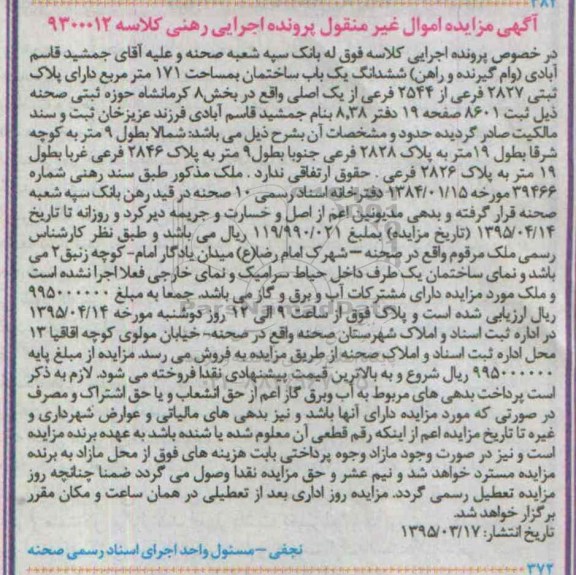 ۳۸۲
آگهی مزایده اموال غیر منقول پرونده اجرایی رهنی کلاسه ۹۳۰۰۰۱۲
در خصوص پرونده اجرایی کلاسه فوق له بانک سپه شعبه صحنه و علیه آقای جمشید قاسم
آبادی (وام گیرنده و راهن) ششدانگ یک باب ساختمان بمساحت ۱۷۱ متر مربع دارای پلاک
ثبتی ۲۸۲۷ فرعی از ۲۵۴۴ فرعی از یک اصلی واقع در بخش۸ کرمانشاه حوزه ثبتی صحنه
ذیل ثبت ۸۶۰۱ صفحه ۱۹ دفتر ۸,۳۸ بنام جمشید قاسم آبادی فرزند عزیزخان ثبت و سند
مالکیت صادر گردیده حدود و مشخصات آن بشرح ذیل می باشد: شمالا بطول ۹ متر به کوچه
شرقا بطول ۱۹متر به پلاک ۲۸۲۸ فرعی جنوبا بطول۹ متر به پلاک ۲۸۴۶ فرعی غربا بطول
۱۹ متر به پلاک ۲۸۲۶ فرعی . حقوق ارتفاقی ندارد . ملک مذکور طبق سند رهنی شماره
۳۹۴۶۶ مورخه ۱۳۸۴/۰۱/۱۵ دفترخانه اسناد رسمی ۱۰ صحنه در قید رهن بانک سپه شعبه
صحنه قرار گرفته و بدهی مدیونین اعم از اصل و خسارت و جریمه دیرکرد و روزانه تا تاریخ
۱۳۹۵/۰۴/۱۴ (تاریخ مزایده) بمبلغ ۱۱۹/۹۹۰/۰۲۱ ریال می باشد و طبق نظر کارشناس
رسمی ملک مرقوم واقع در صحنه – شهرک امام رضا(ع) میدان یادگار امام- کوچه زنبق۲ می
باشد و نمای ساختمان یک طرف داخل حیاط سرامیک و نمای خارجی فعلا اجرا نشده است
و ملک مورد مزایده دارای مشترکات آب و برق و گاز می باشد. جمعا به مبلغ ۹۹۵۰۰۰۰۰۰۰
ریال ارزیابی شده است و پلاک فوق از ساعت ۹ الی ۱۲ روز دوشنبه مورخه ۱۳۹۵/۰۴/۱۴
در اداره ثبت اسناد و املاک شهرستان صحنه واقع در صحنه- خیابان مولوی کوچه اقاقیا ۱۳
محل اداره ثبت اسناد و املاک صحنه از طریق مزایده به فروش می رسد. مزایده از مبلغ پایه
۹۹۵۰۰۰۰۰۰۰ ریال شروع و به بالاترین قیمت پیشنهادی نقدا فروخته می شود. لازم به ذکر
است پرداخت بدهی های مربوط به آب وبرق گاز اعم از حق انشعاب و یا حق اشتراک و مصرف
در صورتی که مورد مزایده دارای آنها باشد و نیز بدهی های مالیاتی و عوارض شهرداری و
غیره تا تاریخ مزایده اعم از اینکه رقم قطعی آن معلوم شده یا شنده باشد به عهده برنده مزایده
است و نیز در صورت وجود مازاد وجوه پرداختی بابت هزینه های فوق از محل مازاد به برنده
مزایده مسترد خواهد شد و نیم عشر و حق مزایده نقدا وصول می گردد ضمنا چنانچه روز
مزایده تعطیل رسمی گردد. مزایده روز اداری بعد از تعطیلی در همان ساعت و مکان مقرر
برگزار خواهد شد.
تاریخ انتشار: ۱۳۹۵/۰۳/۱۷
نجفی – مسئول واحد اجرای اسناد رسمی صحنه
۳۷۲